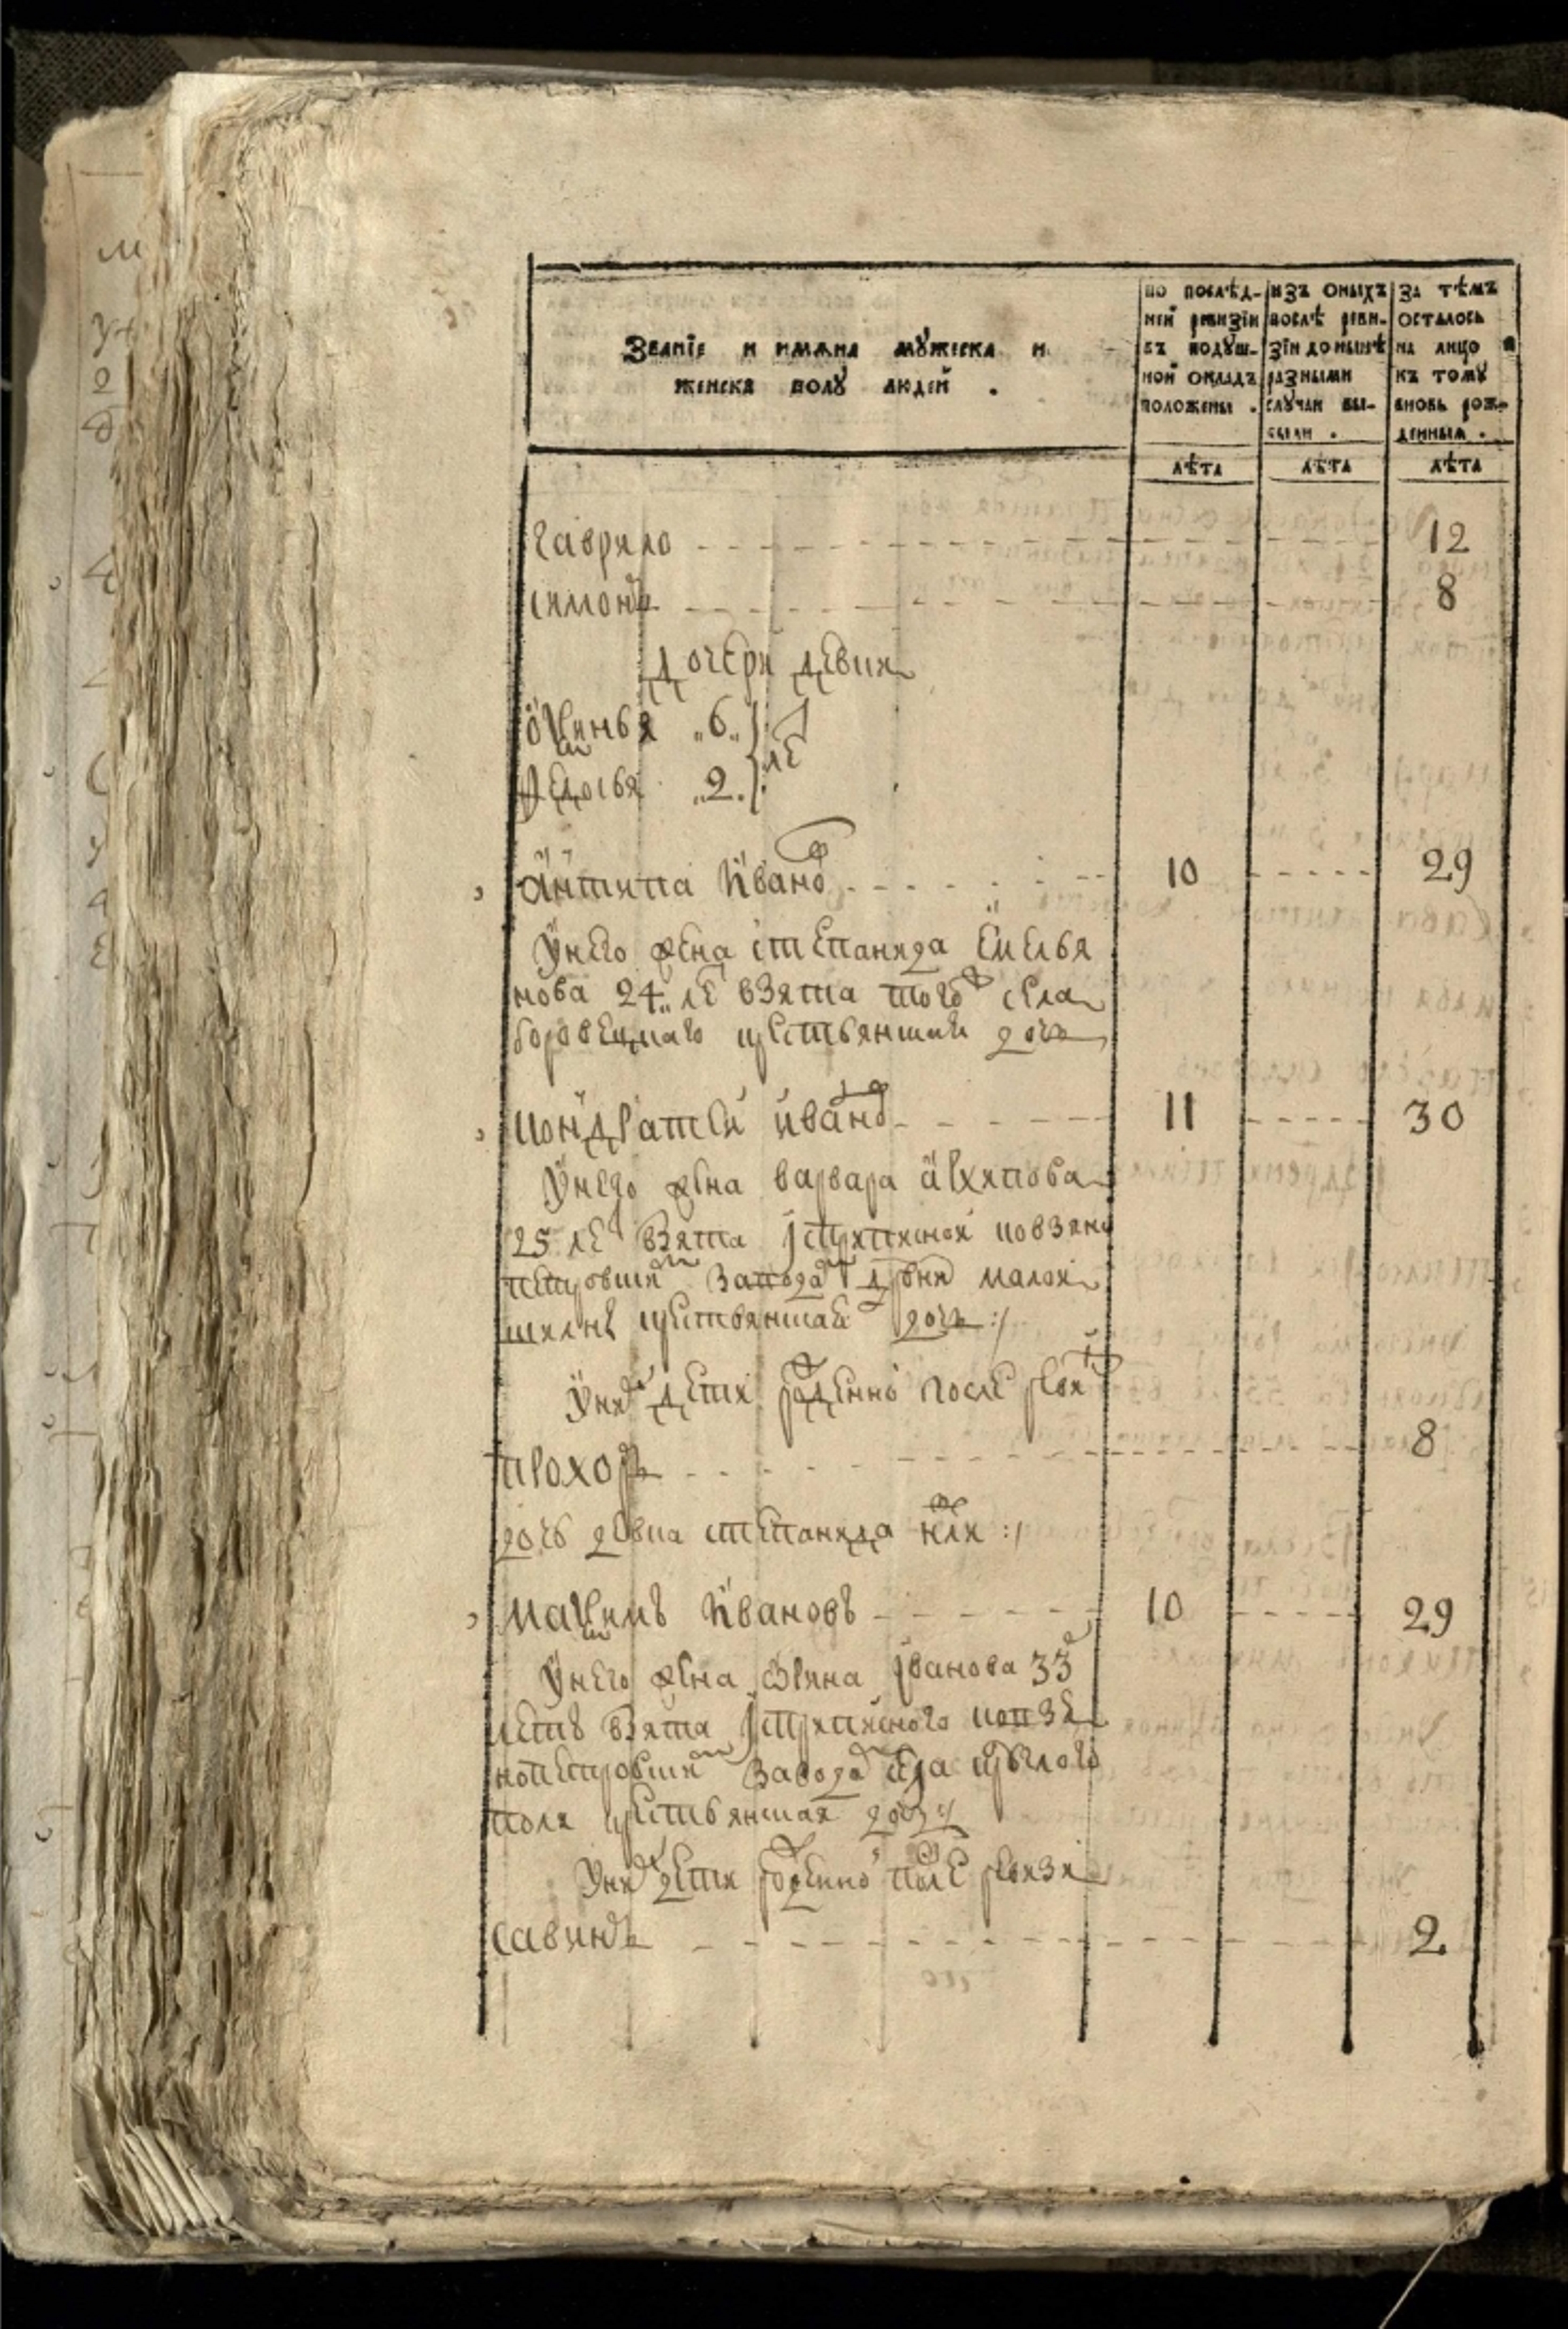 Званіе и имѧна мꙋжеска и
женска полꙋ людей .
по послѣд-
ней ревизіи
въ подꙋш-
ной окладъ
положены .
изъ оныхъ
послѣ реви-
зіи до нынѣ
разными
слꙋчаи вы-
были .
за тѣмъ
осталось
на лицо
къ томꙋ
вновь рож-
денныѧ .
лѣта лѣта лѣта
гаврило 12
симонъ 8
дочери девки
ѻксинья „6„ ле
федосья „2„
антипа иванов 10 29
у него жена степанида емелья
нова 24„ ле взята того ж села
крестьянская дочь
кондратей иванов 11 30
у него жена варвара архипова
25 ле взята
завода дрвни малой
крестьянская дочь :/
у них дети рожденно после реви
прохоръ 8
дочь девка степанида нли :/
максимъ ивановъ 10 29
у него жена иванова 33
летъ взята
завода села
поля крестьянская дочь :/
у них дети рожденно после ревизи
савинъ 2